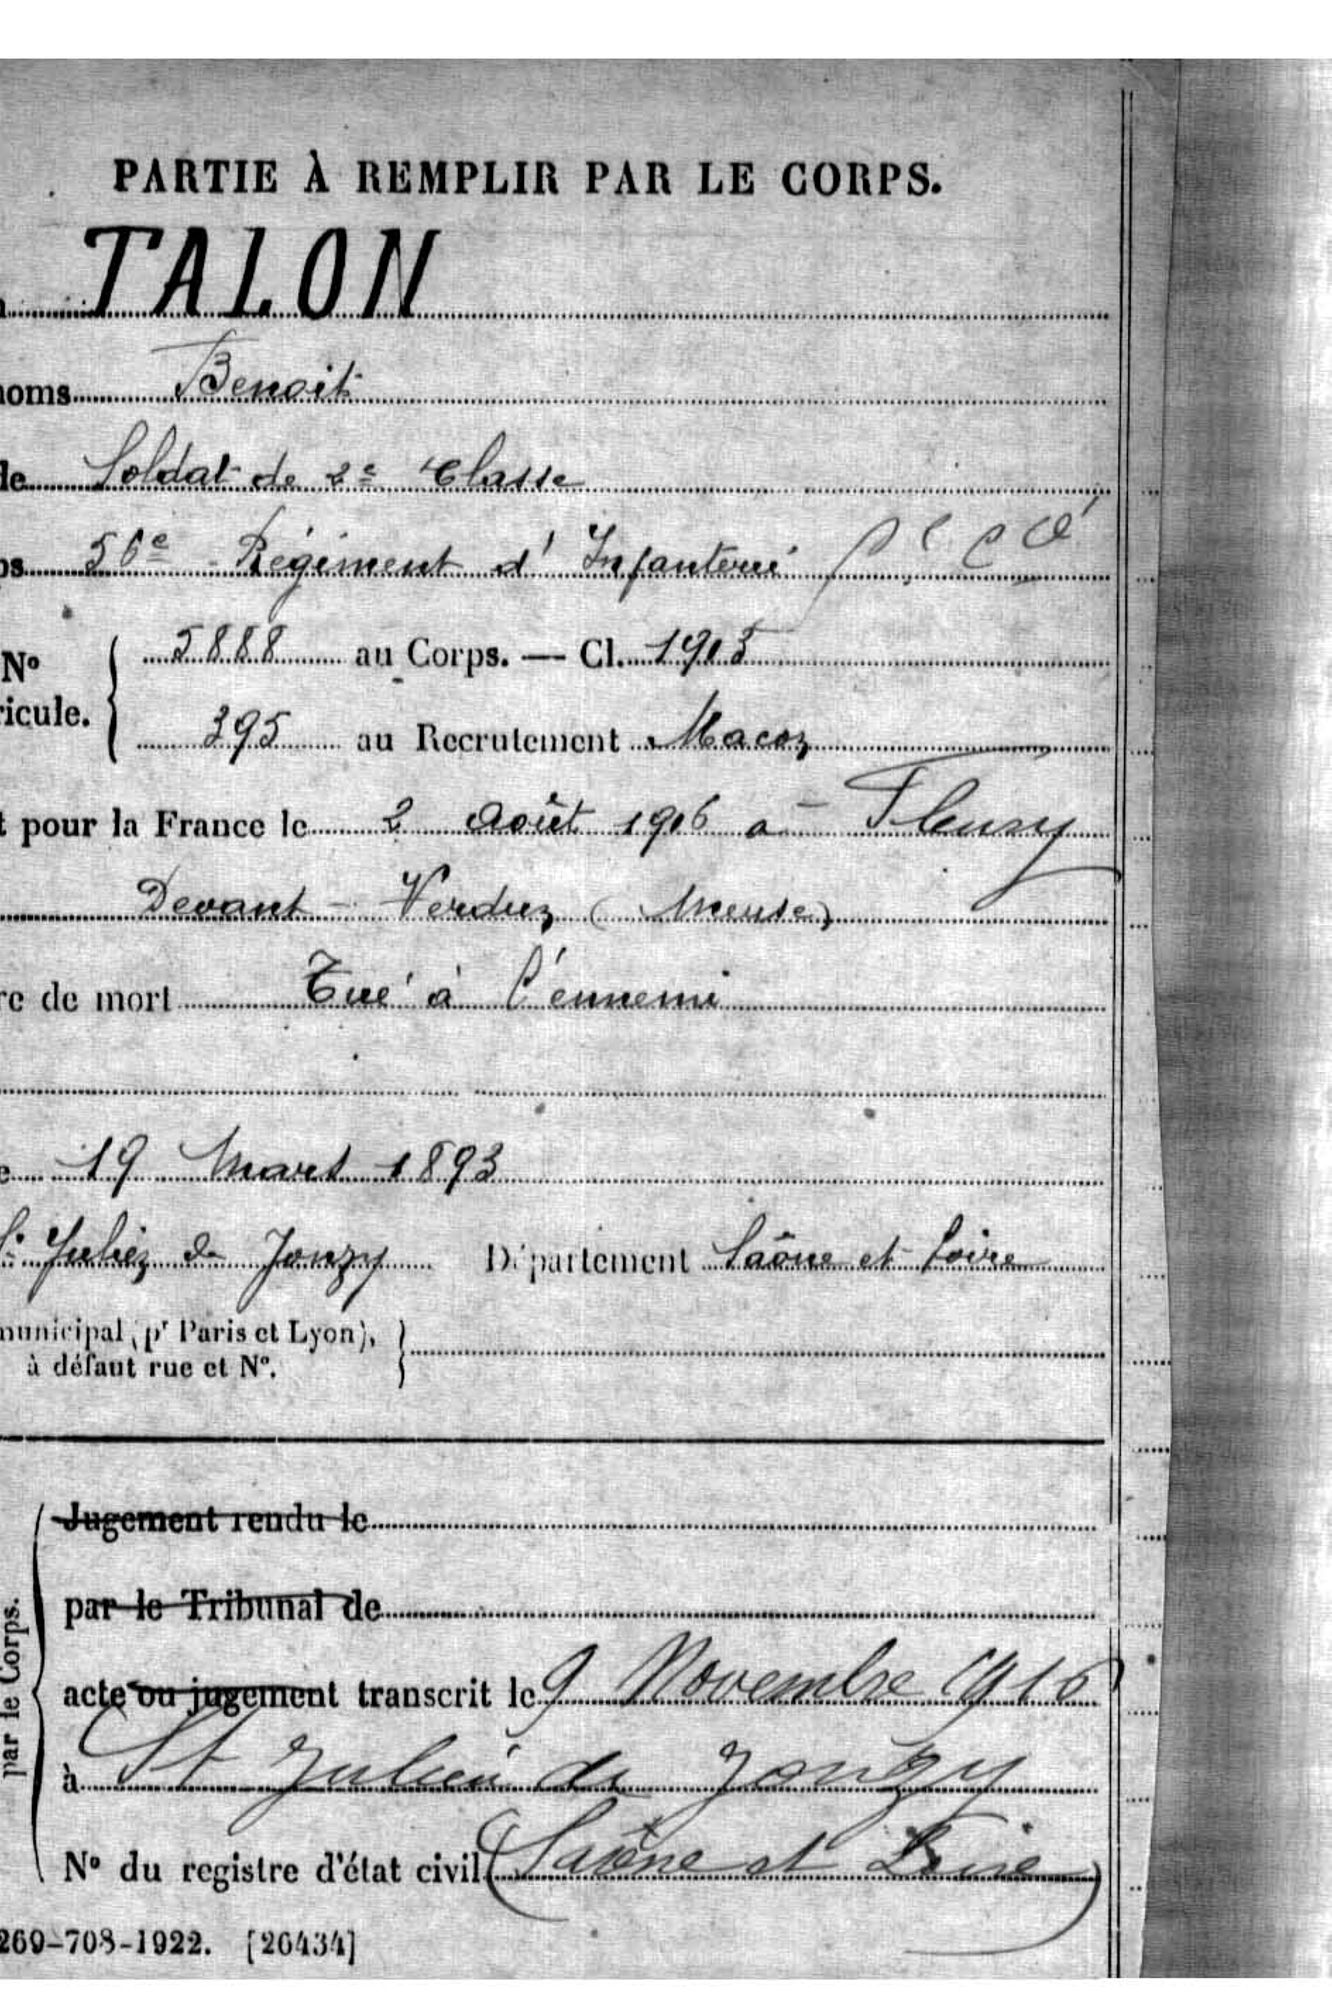 PARTIE À REMPLIR PAR LE CORPS.
TALON
noms Benoit
de Soldat de 2e Classe
ps 56e Régiment d'Infanterie
No { 5888 au Corps. — Cl. 1913
ricule. 395 au Recrutement Macon
t pour la France le 2 Août 1916 à Fleury
Devant - Verdun (Meuse)
re de mort Tué à l'ennemi
e 19 Mars 1893
St Julien de Jonzy Département Saône et Loire
municipal (pr Paris et Lyon),
à défaut rue et No.
Jugement rendu le
par le Tribunal de
acte ou jugement transcrit le 9 Novembre 1916
à St Julien de Jonzy
No du registre d'état civil (Saône et Loire)
par le Corps.
269-708-1922. [26434]